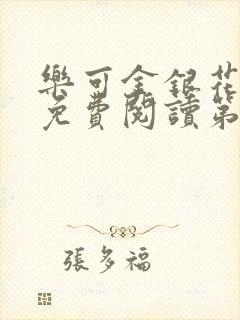 樂可金銀花
免費閱讀第
張多福